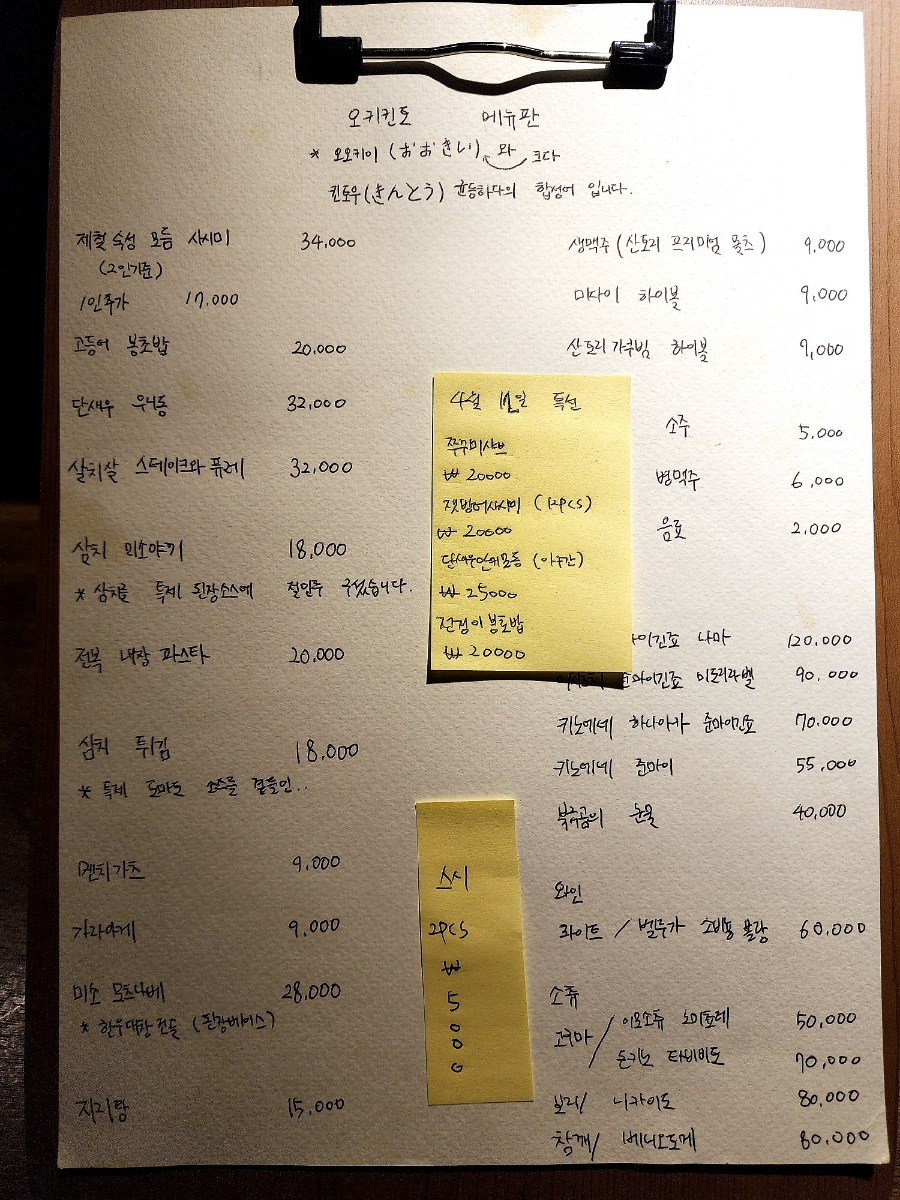 오키킨토 메뉴판
* 오오키이 (おおきい) 와 크다
킨토우(きんとう) 균등하다의 합성어 입니다.
제철 숙성 모듬 사시미 34,000
(2인기준)
1인추가 17,000
고등어 봉초밥 20,000
단새우 우니동 32,000
살치살 스테이크와 퓨레 32,000
삼치 미소야끼 18,000
* 삼치를 특제 된장소스에 절인후 구웠습니다.
전복 내장 파스타 20,000
삼치 튀김 18,000
* 특제 토마토 소스를 곁들인..
멘치가츠 9,000
가라아게 9,000
미소 모츠나베 28,000
* 한우대창전골 (된장베이스)
지리탕 15,000
4월 12일 특선
쭈꾸미샤브
₩ 20000
잿방어사시미 (12PCS)
₩ 20000
단새우안키모듬
₩ 25000
전갱이봉초밥
₩ 20000
스시
2PCS
₩
5
0
0
0
생맥주 (산토리 프리미엄 몰츠) 9,000
미사이 하이볼 9,000
산토리 가쿠빈 하이볼 9,000
소주 5,000
병맥주 6,000
음료 2,000
마이긴죠 나마 120,000
준마이긴죠 미도리라벨 90,000
키노에네 하나아카 준마이긴죠 70,000
키노에네 준마이 55,000
북극곰의 눈물 40,000
와인
화이트 / 벨루가 소비뇽 블랑 60,000
소츄
고구마 / 이모소츄 노미호레 50,000
톤기노 타비비토 70,000
보리/ 니카이도 80,000
참깨/ 베니오토메 80,000